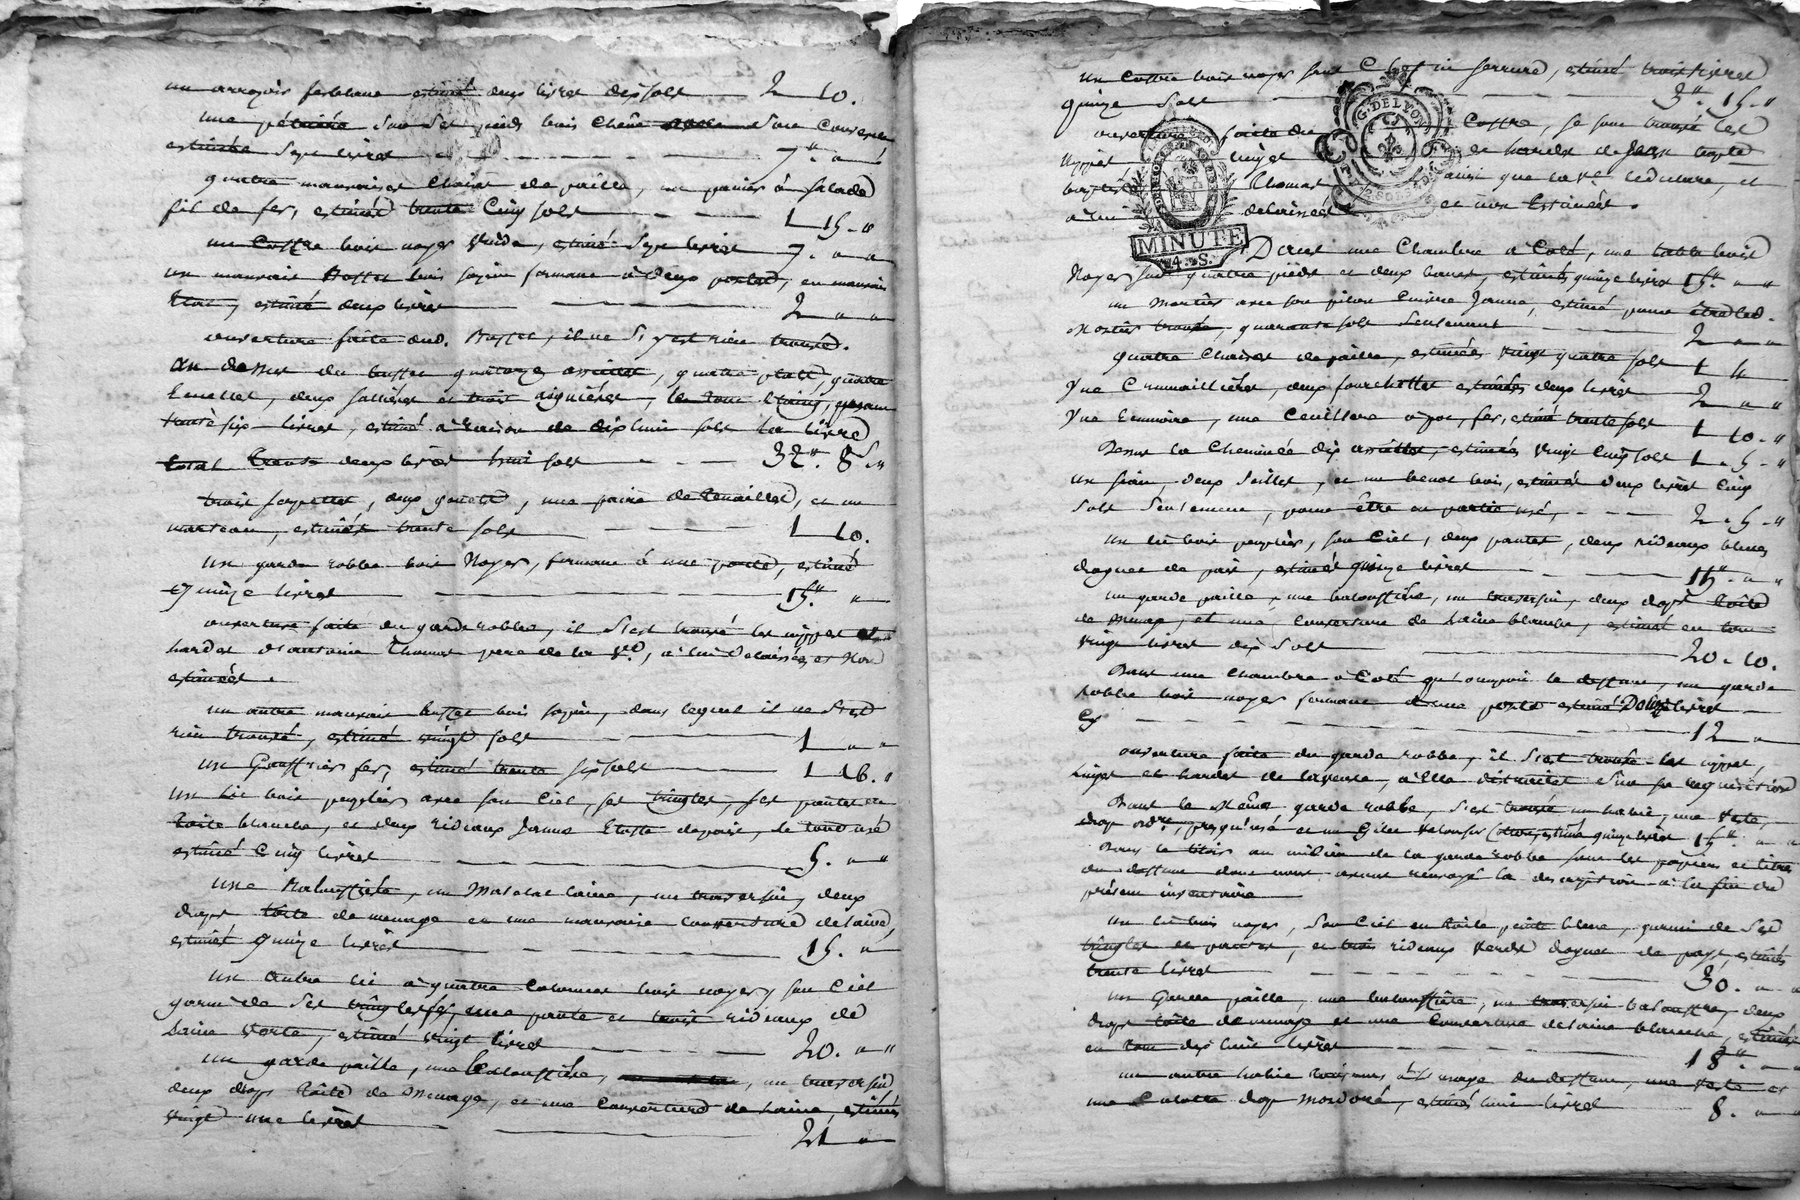 un arrozoir ferblanc estimé deux livres dix sols 2 10.
une pétrière sur ses pieds bois chêne sans couvercle
estimée sept livres 7.# " "
quatre mauvaises chaises de paille, un panier à salade
fil de fer, estimé trente cinq sols 1 15. "
un coffre bois noyer vuide, estimé sept livres 7. " "
un mauvais buffet bois sapin fermant à deux portes, en mauvais
état, estimé deux livres 2 " "
ouverture faite dud. Buffet, il ne s'y est rien trouvé.
au dessus du buffet quatorze assiettes, quatre plats, quatre
ecuelles, deux salières et trois aiguières, le tout étaing, pezant
trente six livres, estimé à raison de dix huit sols la livre
total trente deux livres huit sols 32.# 8.s "
trois serpettes, deux gouets, une paire de tenailles, et un
marteau, estimés trente sols 1 10.
un garde robbe bois noyer, fermant à une porte, estimé
quinze livres 15.# "
ouverture faite du garde robbe, il s'est trouvé les nippes et
hardes d'antoine Thomas pere de la Ve, à lui délaissées et non
estimées.
un autre mauvais buffet bois sapin, dans lequel il ne s'est
rien trouvé, estimé vingt sols 1 " "
un Gauffrier fer, estimé trente six sols 1 16. "
un lit bois peuplier avec son ciel, ses tringles, ses pantes en
toile blanche, et deux rideaux jaunes etoffe de païs, le tout usé
estimé cinq livres 5. " "
une Baloussière, un matelat laine, un traversin, deux
draps toile de menage et une mauvaise couverture de laine,
estimés quinze livres 15. "
un autre lit à quatre colonnes bois noyer, son ciel
garni de ses tringles fer, une pante et trois rideaux de
laine verte, estimé vingt livres 20. " "
un garde paille, une baloussière, un traversin
deux draps toile de menage, et une couverture de laine, estimés
vingt une livres 21 "
un coffre bois noyer sans clef ni serrure, estimé trois livres
quinze sols 3.# 15. "
ouverture faite du coffre, se sont trouvé les
nippes linges et hardes de Jean
baptiste Thomas ainsi que la Ve l'a déclaré, et
à lui délaissées et non estimées.
G. DE LYON
MINUTE
4. S.
Dans une chambre à coté, une table bois
noyer sur quatre pieds et deux bancs, estimés quinze livres 15.# " "
un mortier avec son pilon cuivre jaune, estimé, pour
quarante sols seulement 2 " "
quatre chaises de paille, estimées vingt quatre sols 1 4
une cremaillière, deux fourchettes estimées deux livres 2 " "
une ecumoire, une ceuillere à pot, fer, estimé trente sols 1 10. "
Dessus la cheminée dix assiettes, estimées vingt cinq sols 1. 5. "
un siau, deux seilles, et un benot bois, estimés deux livres cinq
sols seulement, pour être en partie usé, 2. 5. "
un lit bois peuplier, son ciel, deux pantes, deux rideaux bleues
droguet de païs, estimés quinze livres 15. " "
un garde paille, une baloussière, un traversin, deux draps toile
de menage, et une couverture de laine blanche, estimés en tout
vingt livres dix sols 20. 10.
Dans une chambre à coté qu'occupoit le deffunt, un garde
robbe bois noyer fermant à une porte estimé Douze livres
12 "
ouverture faite du garde robbe, il s'est trouvé les nippes,
linges et hardes de la veuve, à elle distraites à sa requisition
Dans le même garde robbe, s'est trouvé un habit, une veste,
drap ordre, presqu'usé et un Gilet velours coton, estimé quinze livres 15.# " "
Dans le tiroir au milieu de la garde robbe sont les papiers et titres
du deffunt dont nous avons renvoyé la description à la fin du
présent inventaire
un lit bois noyer, son ciel en toile peinte blanc, garni de ses
tringles et pantes, et trois rideaux verds droguet de pays, estimés
trente livres 30. " "
un Garde paille, une baloussière, un traversin deux
draps toile de menage et une couverture de laine blanche, estimés
en tout dix huit livres 18.# " "
un autre habit toujours à l'usage du deffunt, une veste et
une culotte drap mordoré, estimés huit livres 8. " "